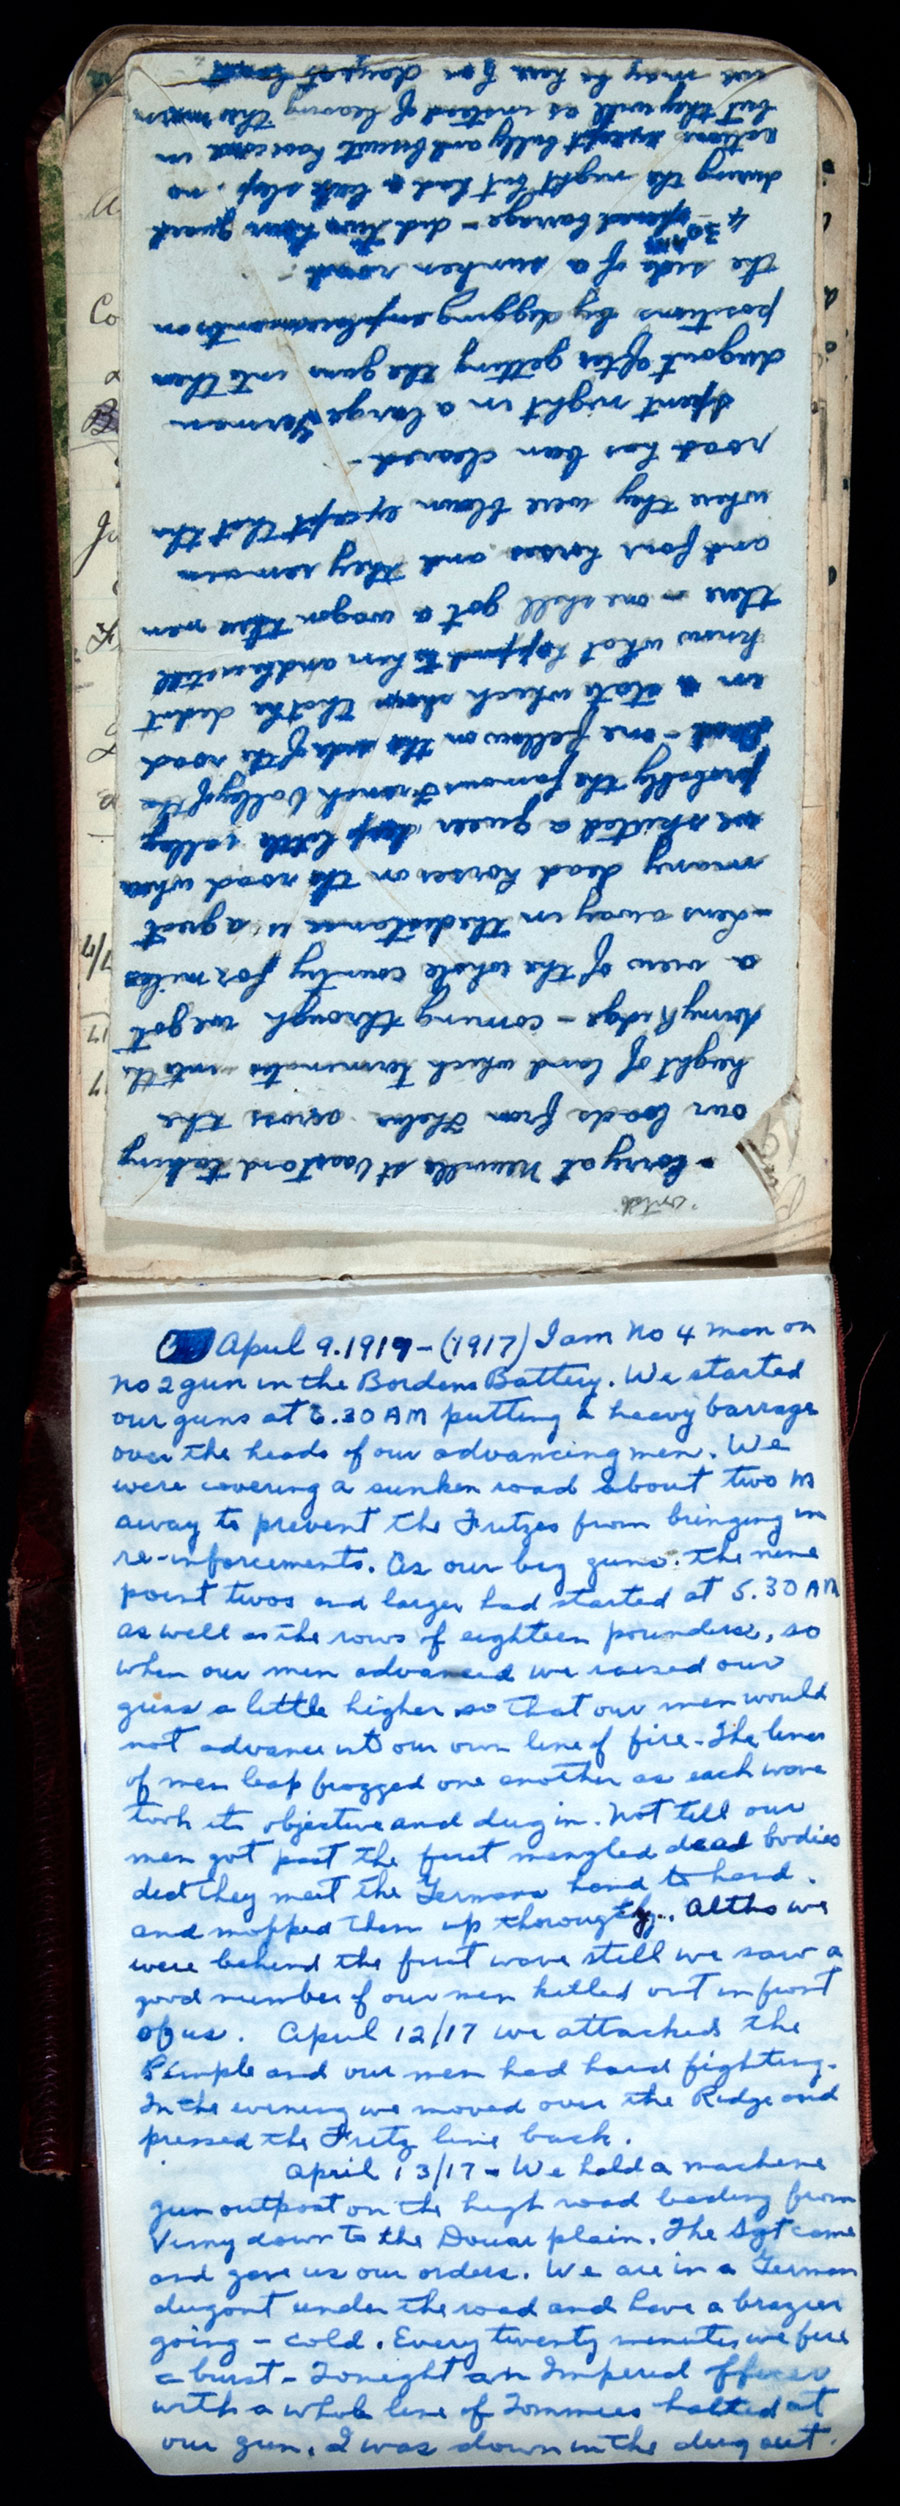 contd
- lorry at Neuville St Vaast and taking
our loads from Thelus across the
height of land which terminates into the
Vimy Ridge - coming through we got
a view of the whole country for miles
- Lens away in the distance is a great
many dead horses on the road when
we skirted a queer deep little valley
probably the famous French Valley of the
Dead - one fellow on the side of the road
in a state which shows that he didnt
know what happened to him and he is still
there - one shell got a wagon three men
and four horses and they remain
where they were blown except that the
road has been cleared -
Spent night in a large German
dugout after getting the guns into their
positions by digging emplacements on
the side of a sunken road -
4-30 AM barrage - did two hour guard
during the night but had a little sleep. no
rations except bully and biscuit have come in
but they will as instead of leaving this
we may be here for days
April 9. 1919 - (1917) I am No 4 man on
No 2 gun in the Bordens Battery. We started
our guns at 6.30 AM putting a heavy barrage
over the heads of our advancing men. We
were covering a sunken road about two M
away to prevent the Fritzes from bringing in
re-inforcements. As our big guns. the nine
point twos and larger had started at 5.30 AM
as well as the rows of eighteen pounders, so
when our men advanced we raised our
guns a little higher so that our men would
not advance into our own line of fire - The lines
of men leap frogged one another as each wave
took its objective and dug in. Not till our
men got past the first mangled dead bodies
did they meet the Germans hand to hand.
and mopped them up thoroughly. Altho we
were behind the first wave still we saw a
good number of our men killed out in front
of us. April 12/17 we attacked the
Pimple and our men had hard fighting.
In the evening we moved over the Ridge and
pressed the Fritz line back.
April 13/17 - We hold a machine
gun outpost on the high road leading from
Vimy down to the Douai plain. The Sgt came
and gave us our orders. We are in a German
dugout under the road and have a brazier
going - cold. Every twenty minutes we fire
a burst - Tonight an Imperial officer
with a whole line of Tommies halted at
our gun. I was down in the dug out.